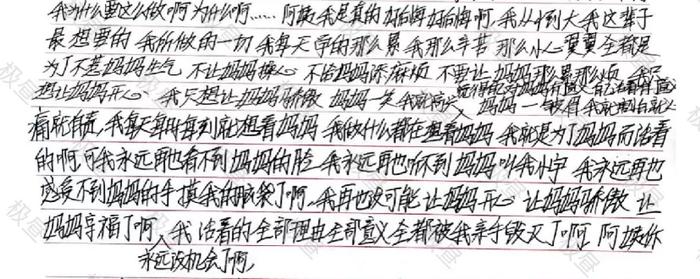 我为什么要这么做啊为什么啊……阿敏我是真的好后悔好后悔啊,我从小到大我这辈子
最想要的我所做的一切我每天学的那么累我那么辛苦那么小心翼翼全都是
为了不惹妈妈生气不让妈妈操心不给妈妈添麻烦不要让妈妈那么累那么烦我只
想让妈妈开心我只想让妈妈骄傲妈妈一笑我就高兴 觉得 妈妈 有意义 自己活着有意义 妈妈一 我就
痛就自责,我每天每时每刻就想着妈妈我做什么都在想着妈妈我就是为了妈妈而活着
的啊可我永远再也看不到妈妈的脸我永远再也听不到妈妈叫我小宇我永远再也
感受不到妈妈的手摸我的脑袋了啊,我再也没可能让妈妈开心让妈妈骄傲让
妈妈享福了啊,我活着的全部理由全部意义全都被我亲手毁灭了啊,阿敏你
永远没机会了啊,
极昼